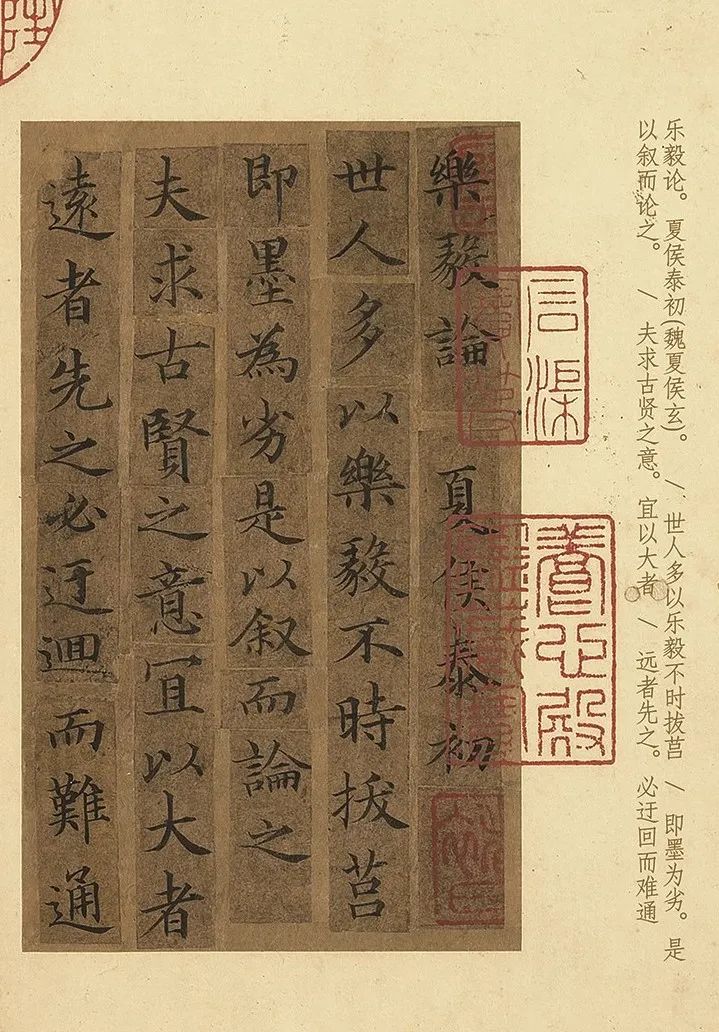 乐毅论。夏侯泰初(魏夏侯玄)。 \ 世人多以乐毅不时拔莒 \ 即墨为劣。是
以叙而论之。 \ 夫求古贤之意。宜以大者 \ 远者先之。必迂回而难通
樂毅論 夏侯泰初
世人多以樂毅不時拔莒
即墨為劣是以叙而論之
夫求古賢之意宜以大者
遠者先之必迂迴而難通